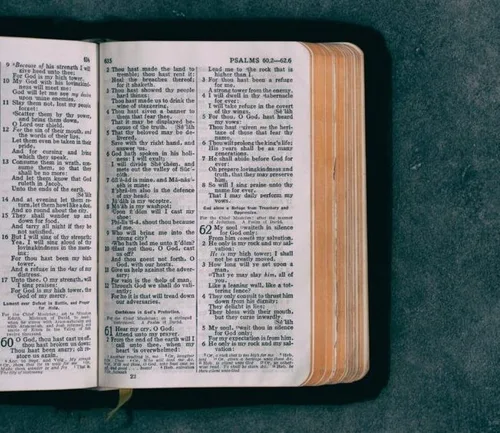 9 Because of his strength I will
give heed unto thee;
For God is my high tower.
10 My God with his lovingkind-
ness will meet me:
God will let me see my desire
upon mine enemies.
11 Slay them not, lest my people
forget:
Scatter them by thy power,
and bring them down,
O Lord our shield.
12 For the sin of their mouth, and
the words of their lips,
Let them even be taken in their
pride,
And for cursing and lying
which they speak.
13 Consume them in wrath, con-
sume them, so that they
shall be no more:
And let them know that God
ruleth in Jacob,
Unto the ends of the earth.
14 And at evening let them re-
turn, let them howl like a dog,
And go round about the city.
15 They shall wander up and
down for food,
And tarry all night if they be
not satisfied.
16 But I will sing of thy strength;
Yea, I will sing aloud of thy
lovingkindness in the morn-
ing:
For thou hast been my high
tower,
And a refuge in the day of my
distress.
17 Unto thee, O my strength, will
I sing praises:
For God is my high tower, the
God of my mercy.
60 O God, thou hast cast us off,
thou hast broken us down;
Thou hast been angry; oh re-
store us again.
613
PSALMS 60.2—62.6
2 Thou hast made the land to
tremble; thou hast rent it:
Heal the breaches thereof;
for it shaketh.
3 Thou hast showed thy people
hard things:
Thou hast made us to drink the
wine of staggering.
4 Thou hast given a banner to
them that fear thee,
That it may be displayed be-
cause of the truth. [Selah
5 That thy beloved may be de-
livered,
Save with thy right hand, and
answer us.
6 God hath spoken in his holi-
ness: I will exult;
I will divide Shechem, and
mete out the valley of Suc-
coth.
7 Gilead is mine, and Manas-
seh is mine;
Ephraim also is the defence
of my head;
Judah is my sceptre.
8 Moab is my washpot;
Upon Edom will I cast my
shoe:
Philistia, shout thou because
of me.
9 Who will bring me into the
strong city?
Who hath led me unto Edom?
10 Hast not thou, O God, cast
us off?
And thou goest not forth, O
God, with our hosts.
11 Give us help against the adver-
sary;
For vain is the help of man.
12 Through God we shall do val-
iantly;
For he it is that will tread down
our adversaries.
Confidence in God's Protection.
61 Hear my cry, O God;
Attend unto my prayer.
2 From the end of the earth will I
call unto thee, when my
heart is overwhelmed:
Lead me to the rock that is
higher than I.
3 For thou hast been a refuge
for me,
A strong tower from the enemy.
4 I will dwell in thy tabernacle
for ever:
I will take refuge in the covert
of thy wings. [Selah
5 For thou, O God, hast heard
my vows:
Thou hast given me the heri-
tage of those that fear thy
name.
6 Thou wilt prolong the king's life;
His years shall be as many
generations.
7 He shall abide before God for
ever:
Oh prepare lovingkindness and
truth, that they may preserve
him.
8 So will I sing praise unto thy
name for ever,
That I may daily perform my
vows.
God alone a Refuge from Treachery and
Oppression.
62 My soul waiteth in silence
for God only:
From him cometh my salvation.
2 He only is my rock and my sal-
vation:
He is my high tower; I shall
not be greatly moved.
3 How long will ye set upon a
man,
That ye may slay him, all of
you,
Like a leaning wall, like a tot-
tering fence?
4 They only consult to thrust him
down from his dignity;
They delight in lies;
They bless with their mouth,
but they curse inwardly.
[Selah
5 My soul, wait thou in silence
for God only;
For my expectation is from him.
6 He only is my rock and my sal-
vation: